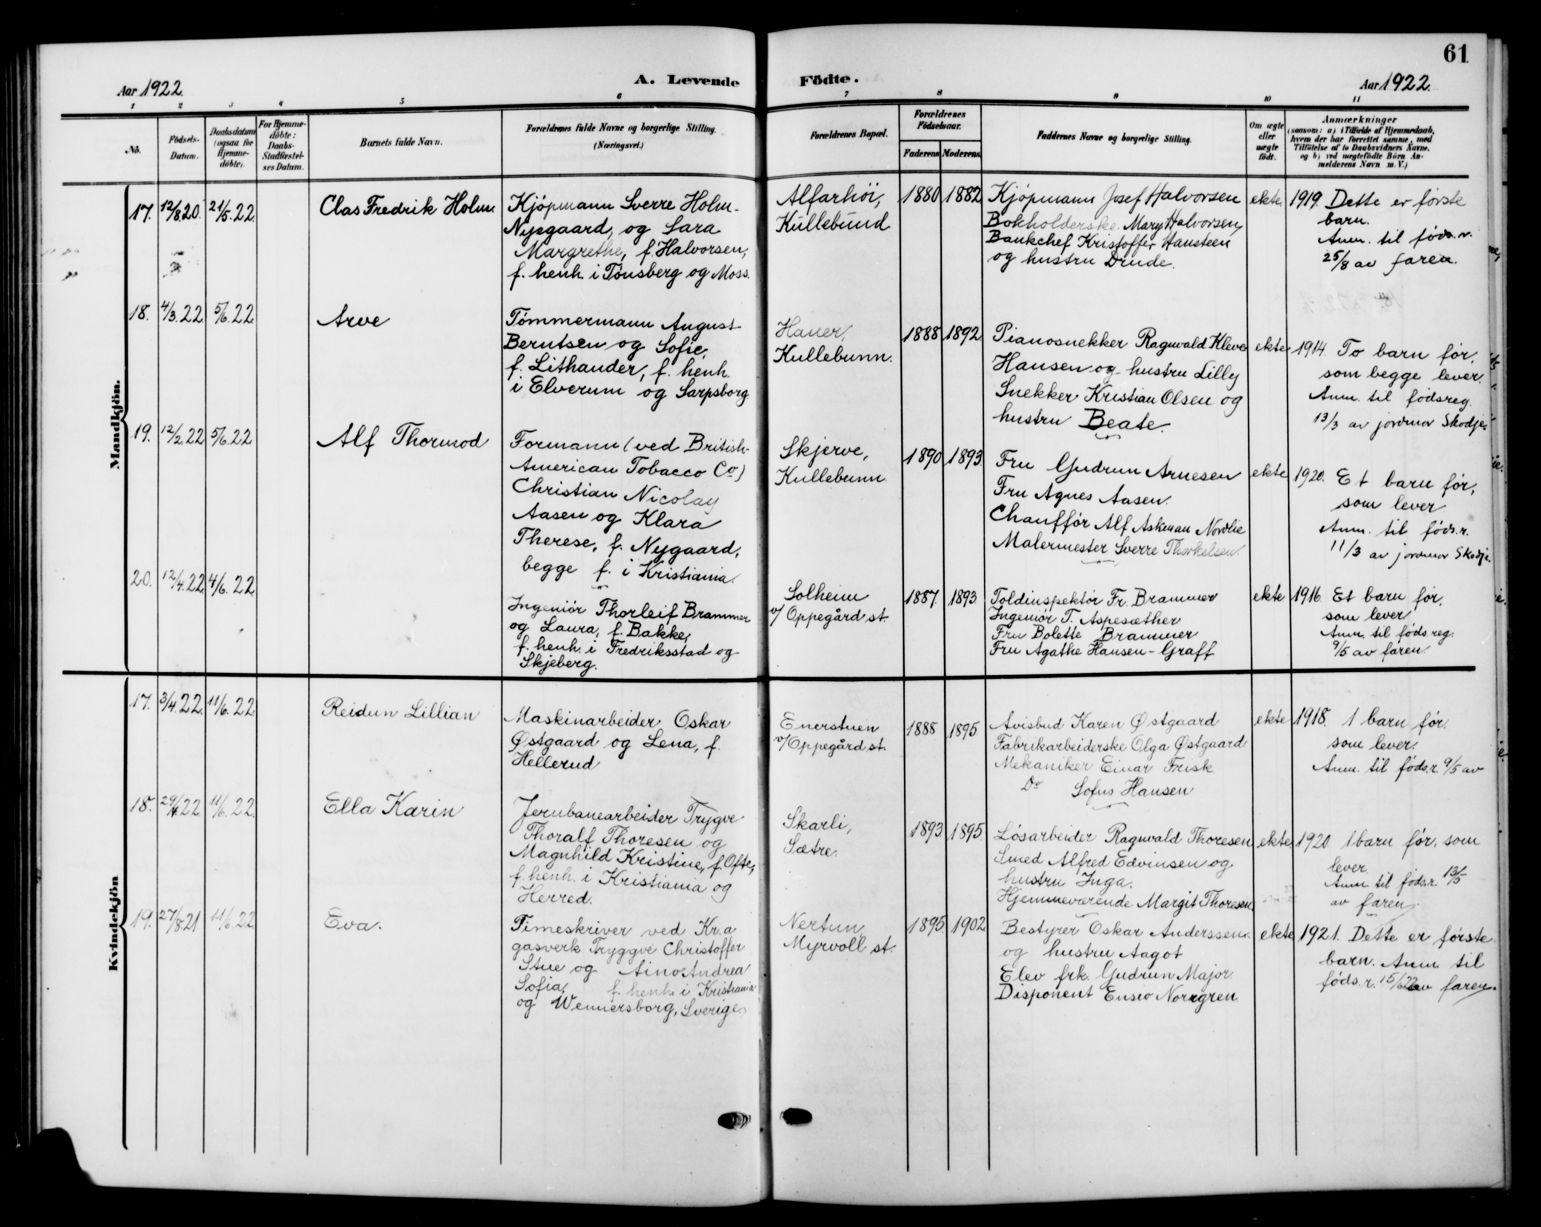 61
Aar 1922
A. Levende Födte.
Aar 1922.
1 2 3 4 5 6 7 8 9 10 11
No.
Födsels-
Datum.
Daabsdatum
(ogsaa for
Hjemme-
döbte).
For Hjemme-
döbte:
Daabs-
Stadfæstel-
ses Datum.
Barnets fulde Navn.
Forældrenes fulde Navne og borgerlige Stilling.
(Næringsvei.)
Forældrenes Bopæl.
Forældrenes
Födselsaar.
Faderens.
Moderens.
Faddernes Navne og borgerlige Stilling.
Om ægte
eller
uægte
födt.
Anmærkninger
(saasom: a) i Tilfælde af Hjemmedaab,
hvem der har forrettet samme, med
Tilföielse af to Daabsvidners Navne,
og b) ved uægtefödte Börn An-
melderens Navn m. V.)
Mandkjön.
17. 12/8 20. 21/5. 22 Clas Fredrik Holm.
Kjöpmann Sverre Holm-
Nygaard, og Sara
Margrethe, f. Halvorsen,
f. henh. i Tønsberg og Moss.
Alfarhöi,
Kullebund
1880 1882
Kjøpmann Josef Halvorsen
Bokholderske Mary Halvorsen
Bankchef Kristoffer Hansteen
og hustru Drude.
ekte
1919. Dette er første
barn.
Anm. til føds. r.
25/8 av faren.
18. 4/3. 22 5/6. 22 Arve
Tømmermann August
Berntsen og Sofie,
f. Lithander, f. henh.
i Elverum og Sarpsborg
Hauer,
Kullebunn.
1888 1892
Pianosnekker Ragnvald Kleve
Hansen og hustru Lilly
Snekker Kristian Olsen og
hustru Beate
ekte
1914. To barn før,
som begge lever.
Anm. til fødsreg.
13/3 av jordmor Skodje
19. 12/2. 22 5/6. 22 Alf Thormod
Formann (ved British-
American Tobacco Co)
Christian Nicolay
Aasen og Klara
Therese, f. Nygaard,
begge f. i Kristiania.
Skjerve,
Kullebunn
1890 1893.
Fru Gudrun Arnesen
Fru Agnes Aasen.
Chauffør Alf Askman Nordlie
Malermester Sverre Thorkelsen
ekte
1920. Et barn før,
som lever
Anm. til føds. r.
11/3 av jordmor Skodje.
20. 12/4. 22 4/6. 22
Ingeniør Thorleif Brammer
og Laura, f. Bakke,
f. henh. i Fredriksstad og
Skjeberg.
Solheim
v/ Oppegård st.
1887. 1893
Toldinspektør Fr. Brammer
Ingeniør T. Aspesæther
Fru Bolette Brammer
Fru Agathe Hansen-Graff
ekte
1916. Et barn før,
som lever
Anm. til føds. reg.
9/5 av faren.
Kvindekjön
17. 3/4. 22 11/6. 22 Reidun Lillian
Maskinarbeider Oskar
Østgaard og Lena, f.
Hellerud
Enerstuen
v/Oppegård st.
1888 1895
Avisbud Karen Østgaard
Fabrikarbeiderske Olga Østgaard
Mekaniker Einar Frisk
Do Sofus Hansen
ekte
1918. 1 barn før.
som lever.
Anm. til føds. r. 9/5 av
18. 29/4 22 11/6. 22 Ella Karin
Jernbanearbeider Trygve
Thoralf Thoresen og
Magnhild Kristine, f. Ofte,
f. henh. i Kristiania og
Herred.
Skarli,
Sætre.
1893 1895
Løsarbeider Ragnvald Thoresen
Smed Alfred Edvinsen og
hustru Inga.
Hjemmeværende Margit Thoresen
ekte
1920 1 barn før, som
lever.
Anm. til føds. r. 13/5
av faren
19. 27/8 21 11/6. 22 Eva.
Timeskriver ved Kr.a
gasverk Tryggve Christoffer
Stue og Aino Andrea
Sofia, f. henh. i Kristiania
og Wennersborg, Sverige
Nertun,
Myrvoll st.
1895 1902
Bestyrer Oskar Anderssen.
og hustru Aagot
Elev frk. Gudrun Major
Disponent Ensio Norrgren
ekte
1921. Dette er første
barn. Anm til
føds. r. 15/6 22 av faren.